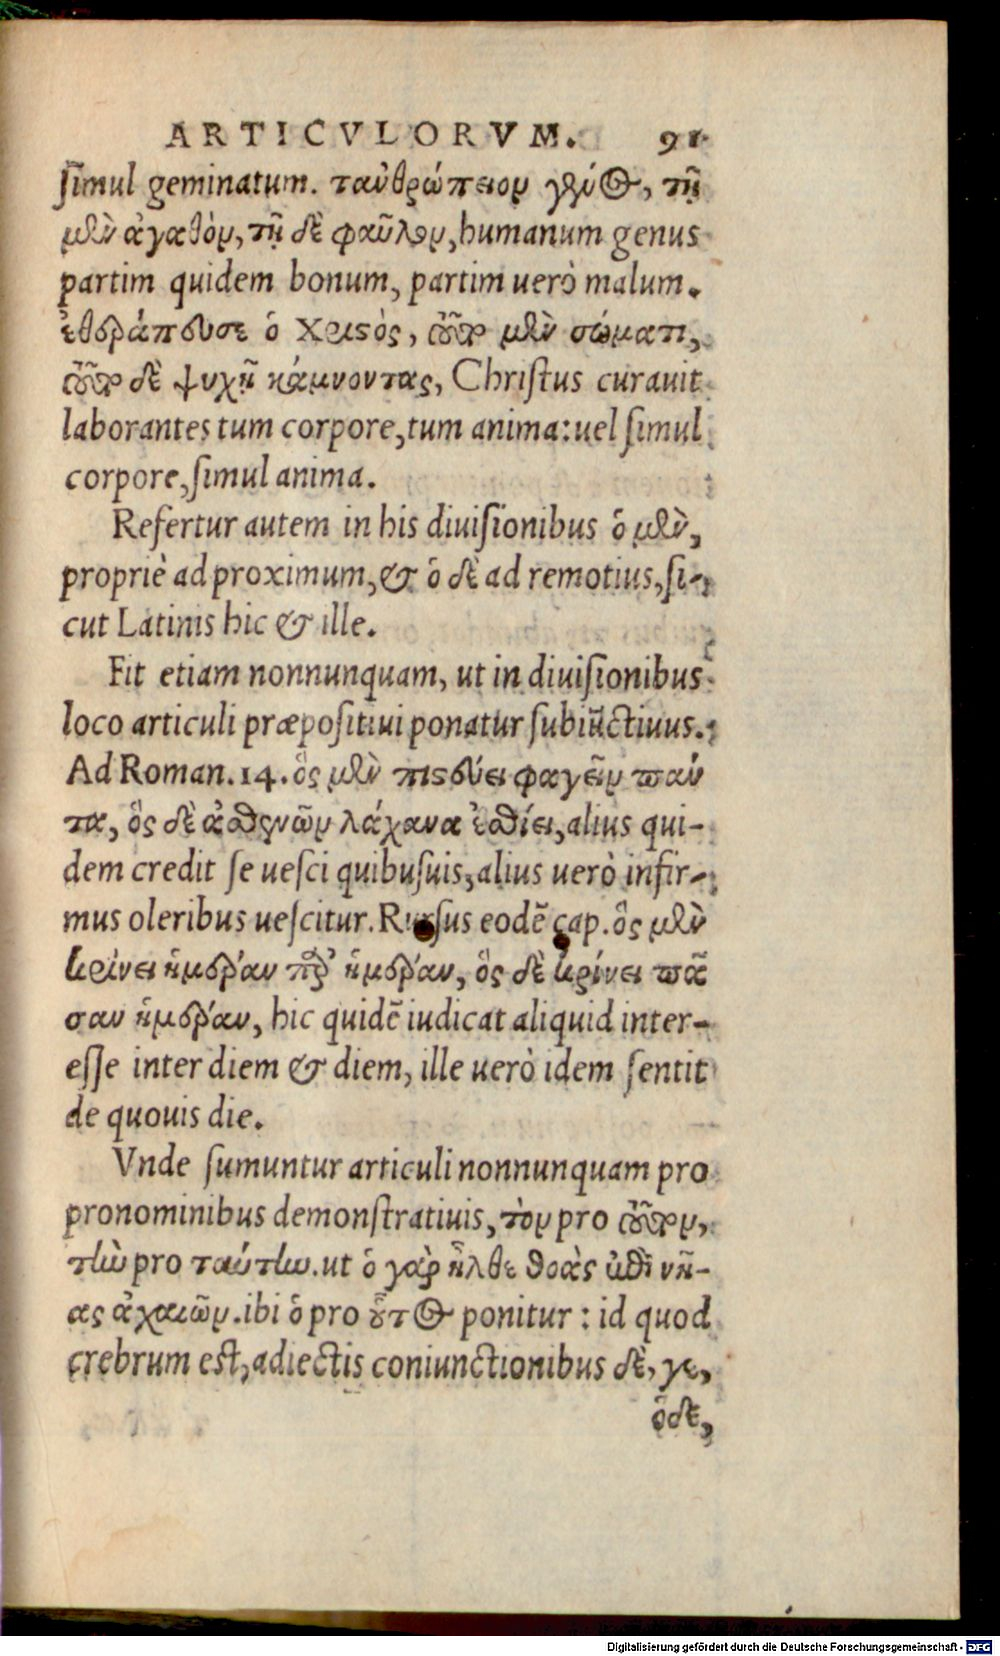 ARTICVLORVM. 91
simul geminatum. τανθρώπειον γένος, τῇ
μὲν ἀγαθὸν, τῇ δὲ φαῦλον, humanum genus
partim quidem bonum, partim uerò malum.
ἐθεράπευσε ὁ Χριστὸς, τοὺς μὲν σώματι,
τοὺς δὲ ψυχῇ κάμνοντας, Christus curauit
laborantes tum corpore, tum anima: uel simul
corpore, simul anima.
Refertur autem in his diuisionibus ὁ μὲν,
propriè ad proximum, & ὁ δὲ ad remotius, si-
cut Latinis hic & ille.
Fit etiam nonnunquam, ut in diuisionibus
loco articuli præpositiui ponatur subiūctiuus.
Ad Roman. 14. ὃς μὲν πιστεύει φαγεῖν παν
τα, ὃς δὲ ἀσθενῶν λάχανα ἐσθίει, alius qui-
dem credit se uesci quibusuis, alius uerò infir-
mus oleribus uescitur. Rursus eodē cap. ὃς μὲν
κρίνει ἡμέραν παρ' ἡμέραν, ὃς δὲ κρίνει πᾶ
σαν ἡμέραν, hic quidē iudicat aliquid inter-
esse inter diem & diem, ille uerò idem sentit
de quouis die.
Vnde sumuntur articuli nonnunquam pro
pronominibus demonstratiuis, τὸν pro τοῦτον,
τὴν pro ταύτην. ut ὁ γὰρ ἦλθε θοὰς ἐπὶ νῆ-
ας ἀχαιῶν. ibi ὁ pro οὗτος ponitur: id quod
crebrum est, adiectis coniunctionibus δὲ, γε,
ὅδε,
Digitalisierung gefördert durch die Deutsche Forschungsgemeinschaft - DFG